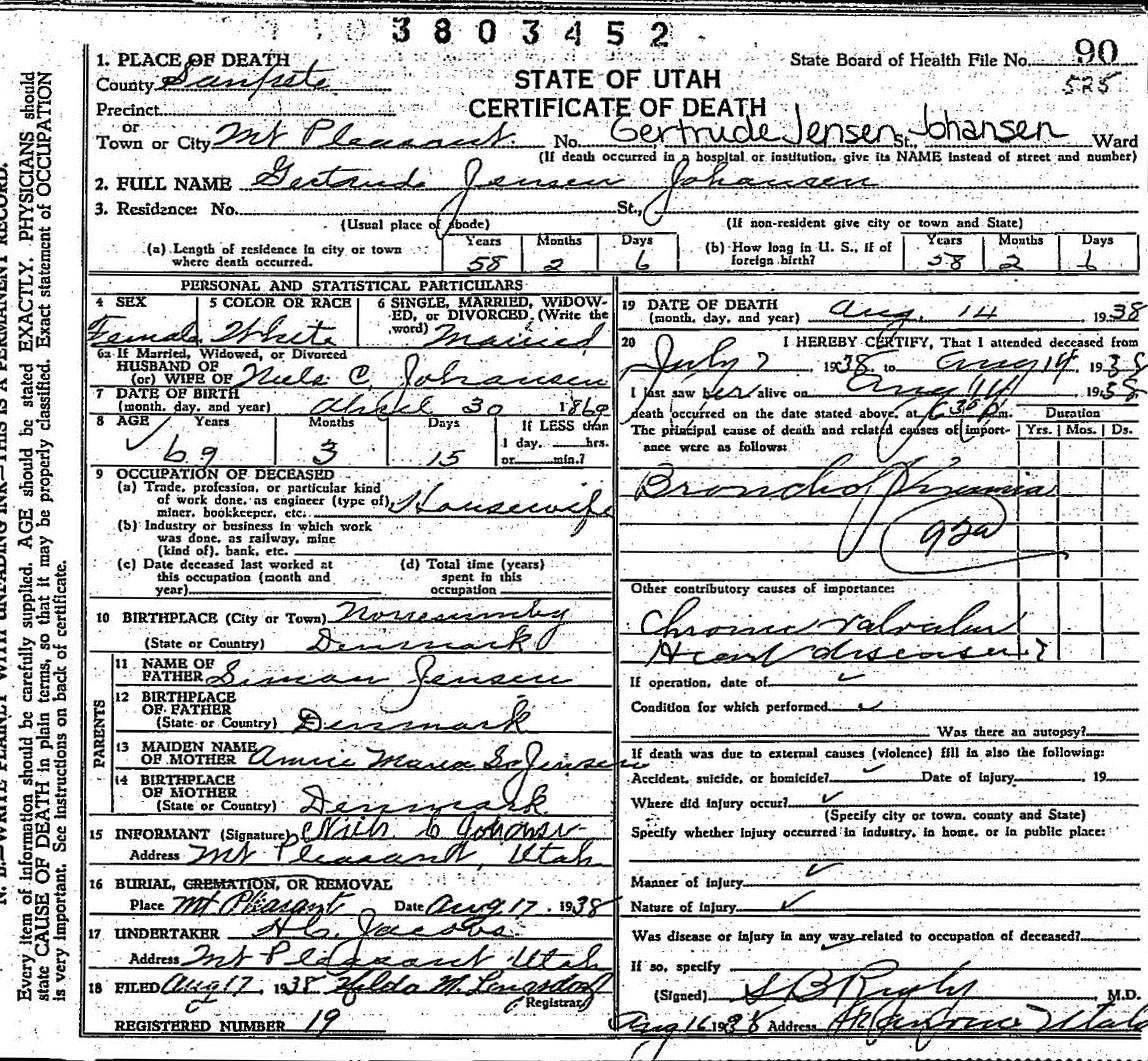 3803452
State Board of Health File No. 90
525
STATE OF UTAH
CERTIFICATE OF DEATH
1. PLACE OF DEATH
County Sanpete
Precinct
or
Town or City Mt Pleasant. No. Gertrude Jensen St., Johansen Ward
(If death occurred in a hospital or institution, give its NAME instead of street and number)
2. FULL NAME Gertrude Jensen Johansen
3. Residence: No. St.,
(Usual place of abode) (If non-resident give city or town and State)
(a) Length of residence in city or town where death occurred. Years 58 Months 2 Days 6
(b) How long in U. S., if of foreign birth? Years 58 Months 2 Days 6
PERSONAL AND STATISTICAL PARTICULARS
4 SEX Female
5 COLOR OR RACE White
6 SINGLE, MARRIED, WIDOWED, or DIVORCED. (Write the word) Married
6a If Married, Widowed, or Divorced
HUSBAND OF
(or) WIFE OF Niels C. Johansen
7 DATE OF BIRTH
(month, day, and year) April 30 1869
8 AGE Years 69 Months 3 Days 15 If LESS than 1 day, hrs. or min.?
9 OCCUPATION OF DECEASED
(a) Trade, profession, or particular kind of work done, as engineer (type of) miner, bookkeeper, etc. Housewife
(b) Industry or business in which work was done, as railway, mine (kind of), bank, etc.
(c) Date deceased last worked at this occupation (month and year)
(d) Total time (years) spent in this occupation
10 BIRTHPLACE (City or Town)
(State or Country) Denmark
PARENTS
11 NAME OF FATHER Simon Jensen
12 BIRTHPLACE OF FATHER
(State or Country) Denmark
13 MAIDEN NAME OF MOTHER Annie Maria Jensen
14 BIRTHPLACE OF MOTHER
(State or Country) Denmark
15 INFORMANT (Signature) Niels C Johansen
Address Mt Pleasant, Utah
16 BURIAL, CREMATION, OR REMOVAL
Place Mt Pleasant Date Aug 17, 1938
17 UNDERTAKER Jacobs
Address Mt Pleasant Utah
18 FILED Aug 17, 1938 Hilda M.
(Registrar)
REGISTERED NUMBER 19
19 DATE OF DEATH
(month, day, and year) Aug. 14 1938
20 I HEREBY CERTIFY, That I attended deceased from
July 7, 1938, to Aug 14 1938
I last saw her alive on Aug 14 1938
death occurred on the date stated above, at 6 30 P.m.
The principal cause of death and related causes of importance were as follows:
Duration
Yrs. Mos. Ds.
Broncho Pneumonia
92a
Other contributory causes of importance:
Chronic Valvular
Heart disease ?
If operation, date of
Condition for which performed
Was there an autopsy?
If death was due to external causes (violence) fill in also the following:
Accident, suicide, or homicide? Date of injury 19
Where did injury occur?
(Specify city or town, county and State)
Specify whether injury occurred in industry, in home, or in public place:
Manner of injury
Nature of injury
Was disease or injury in any way related to occupation of deceased?
If so, specify
(Signed) S B Rigby M.D.
Aug 16 1938 Address Utah
N. B.—WRITE PLAINLY WITH UNFADING INK—THIS IS A PERMANENT RECORD.
Every item of information should be carefully supplied. AGE should be stated EXACTLY. PHYSICIANS should
state CAUSE OF DEATH in plain terms, so that it may be properly classified. Exact statement of OCCUPATION
is very important. See instructions on back of certificate.